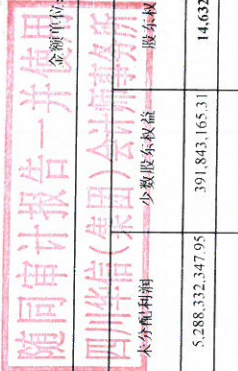 随同审计报告一并使用
四川华信(集团)会计师事务所
金额单位:
未分配利润
少数股东权益
股东权
5,288,332,347.95
391,843,165.31
14,632